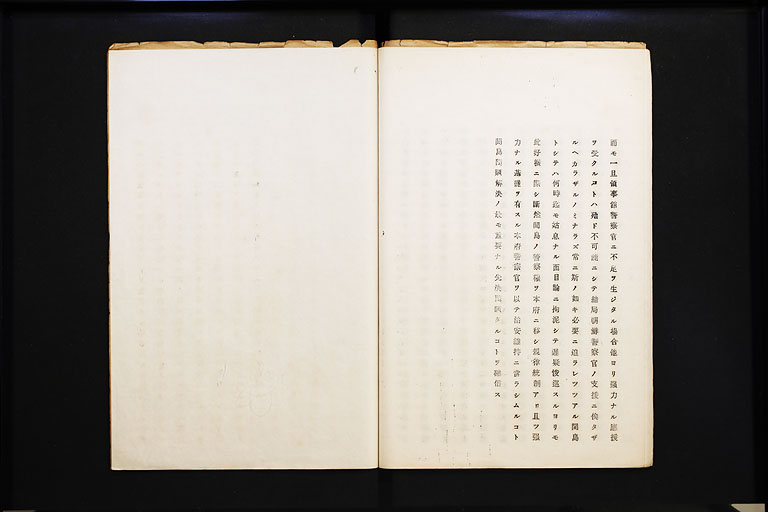 而モ一旦領事館警察官ニ不足ヲ生ジタル場合他ヨリ强力ナル應援
ヲ受クルコトハ殆ド不可能ニシテ結局朝鮮警察官ノ支援ニ俟タザ
ルヘカラザルノミナラズ常ニ斯ノ如キ必要ニ迫ラレツツアル間島
トシテハ何時迄モ姑息ナル面目論ニ拘泥シテ遲疑悛巡スルヨリモ
此好機ニ際シ斷然間島ノ警察權ヲ本府ニ移シ規律統制アリ且ツ强
力ナル基礎ヲ有スル本府警察官ヲ以テ治安維持ニ當ラシムルコト
間島問題解決ノ最モ重要ナル先決問題タルコトヲ確信ス